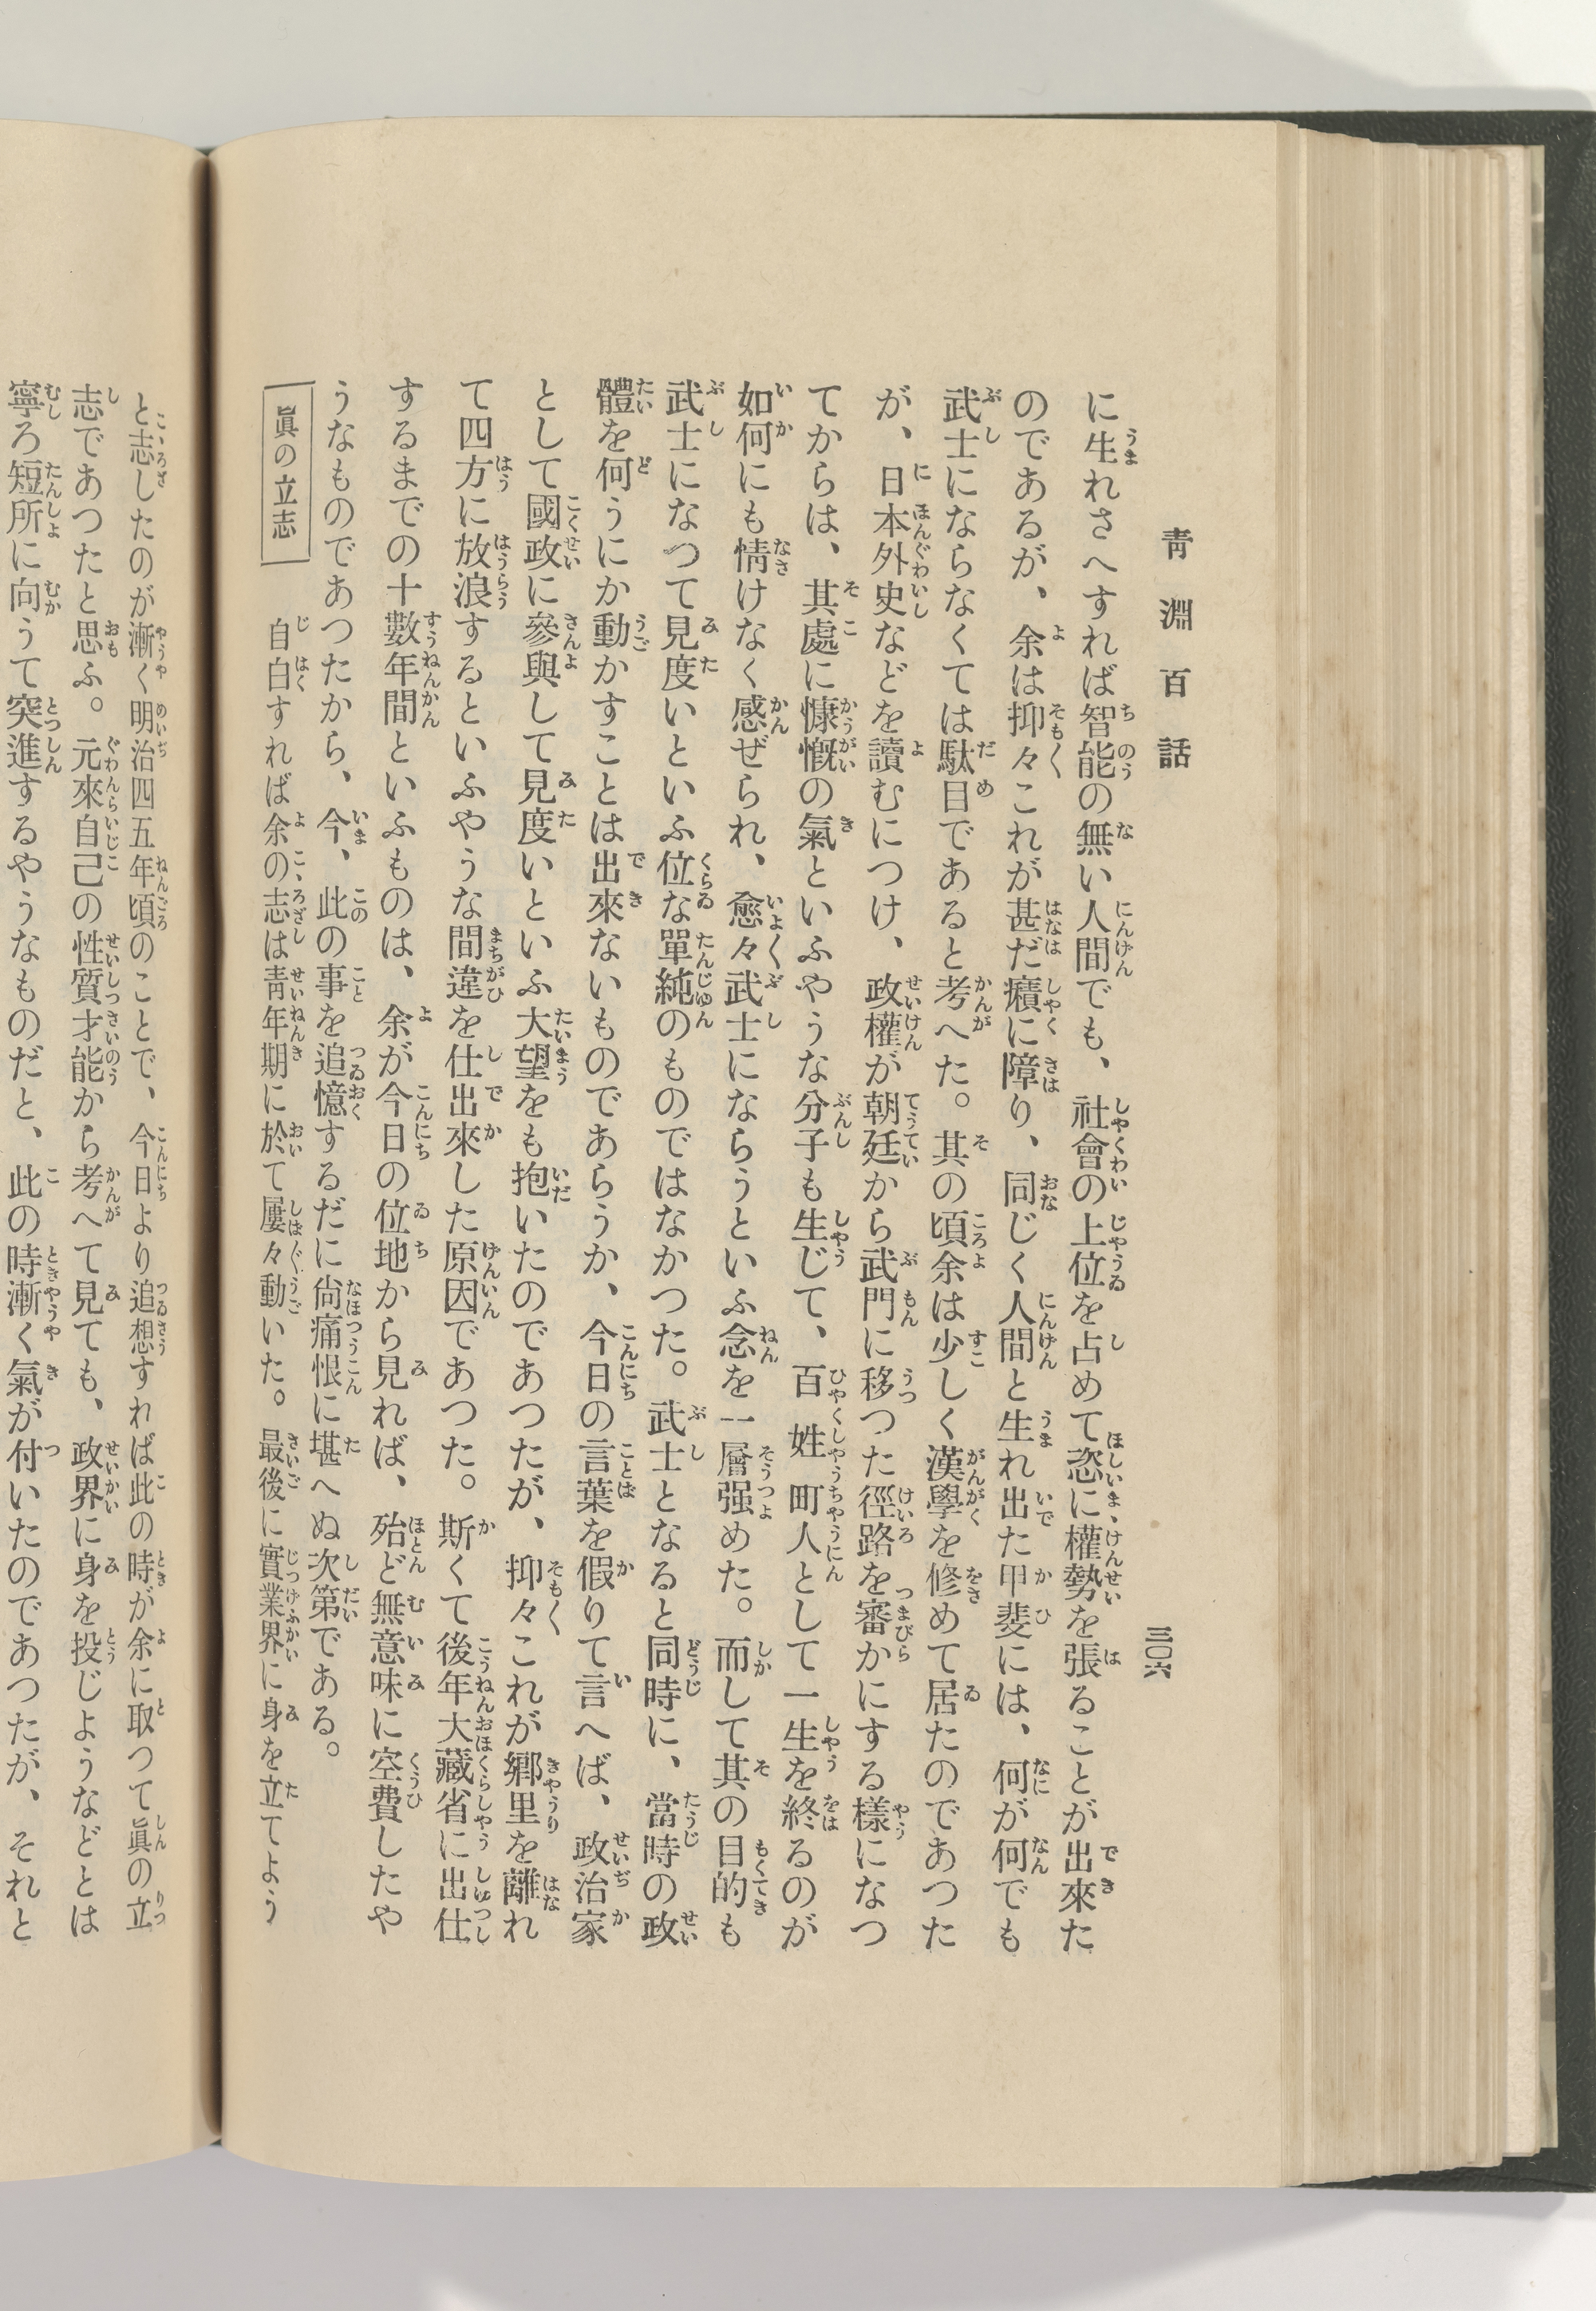 靑淵百話
三〇六
に生れさへすれば智能の無い人間でも、社會の上位を占めて恣に權勢を張ることが出來た
のであるが、余は抑々これが甚だ癪に障り、同じく人間と生れ出た甲斐には、何が何でも
武士にならなくては駄目であると考へた。其の頃余は少しく漢學を修めて居たのであつた
が、日本外史などを讀むにつけ、政權が朝廷から武門に移つた徑路を審かにする樣になつ
てからは、其處に慷慨の氣といふやうな分子も生じて、百姓町人として一生を終るのが
如何にも情けなく感ぜられ、愈々武士にならうといふ念を一層强めた。而して其の目的も
武士になつて見度いといふ位な單純のものではなかつた。武士となると同時に、當時の政
體を何うにか動かすことは出來ないものであらうか、今日の言葉を假りて言へば、政治家
として國政に參與して見度いといふ大望をも抱いたのであつたが、抑々これが鄕里を離れ
て四方に放浪するといふやうな間違を仕出來した原因であつた。斯くて後年大藏省に出仕
するまでの十數年間といふものは、余が今日の位地から見れば、殆ど無意味に空費したや
うなものであつたから、今、此の事を追憶するだに尙痛恨に堪へぬ次第である。
眞の立志
自白すれば余の志は靑年期に於て屢々動いた。最後に實業界に身を立てよう
と志したのが漸く明治四五年頃のことで、今日より追想すれば此の時が余に取つて眞の立
志であつたと思ふ。元來自己の性質才能から考へて見ても、政界に身を投じようなどとは
寧ろ短所に向うて突進するやうなものだと、此の時漸く氣が付いたのであつたが、それと